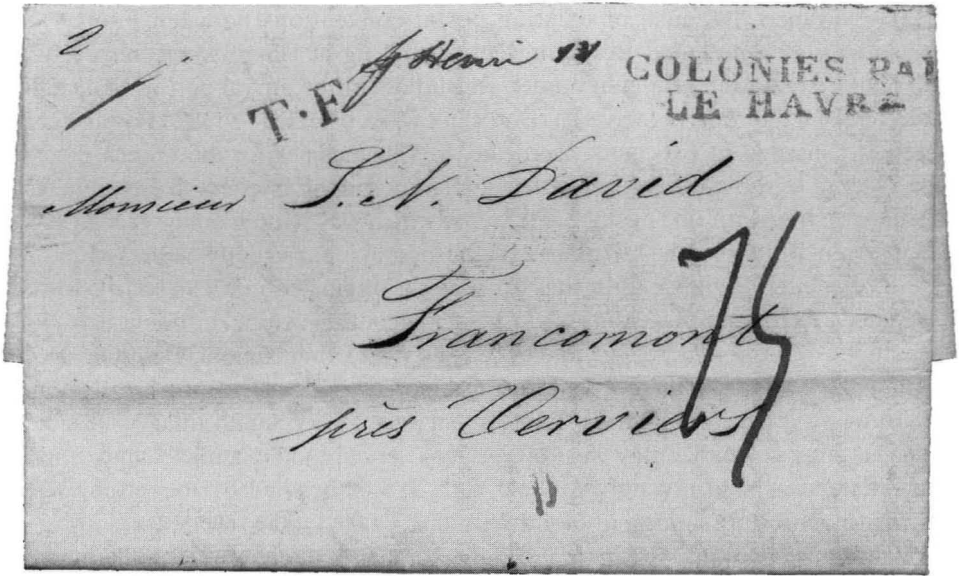 2
Henri
COLONIES PAR
T.F
LE HAVRE
Monsieur J. N. David
Francomont
près Verviers